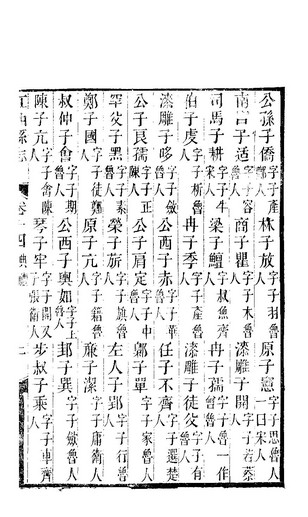 公孫子僑字子產鄭人林子放字子羽魯人原子憲字子思魯人一曰宋人
南宮子适字子容魯人商子瞿字子木魯人漆雕子開字子若蔡人
司馬子耕字子牛宋人梁子鱣字叔魚齊人冉子孺字子魯一作曾魯人
伯子虔字子析魯人冉子季字子產魯人漆雕子徒父字子有魯人
漆雕子哆字子斂魯人公西子赤字子華魯人任子不齊字子選楚人
公子良孺字子正陳人公子肩定字子中魯人鄡子單字子家魯人
罕父子黑字子素魯人榮子旂字子旗魯人左人子郢字子行魯人
鄭子國字子徒魯人原子亢字子籍魯人廉子潔字子庸衛人
叔仲子會字子期魯人公西子輿如字子上魯人邽子巽字子斂魯人
陳子亢字子禽陳人琴子牢字子開又字子張衛人步叔子乘字子車齊人
縣志 卷十四典禮